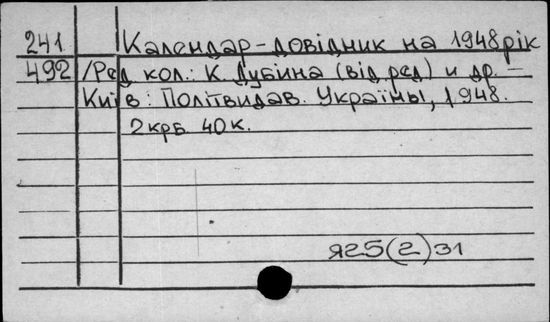 241 Календар-довідник на 1948 рік
492 /Ред кол.: К. Дубина (від ред) и др. –
Київ: Політвидав. Украïны, 1948.
2 крб 40 к.
Я25(2)31